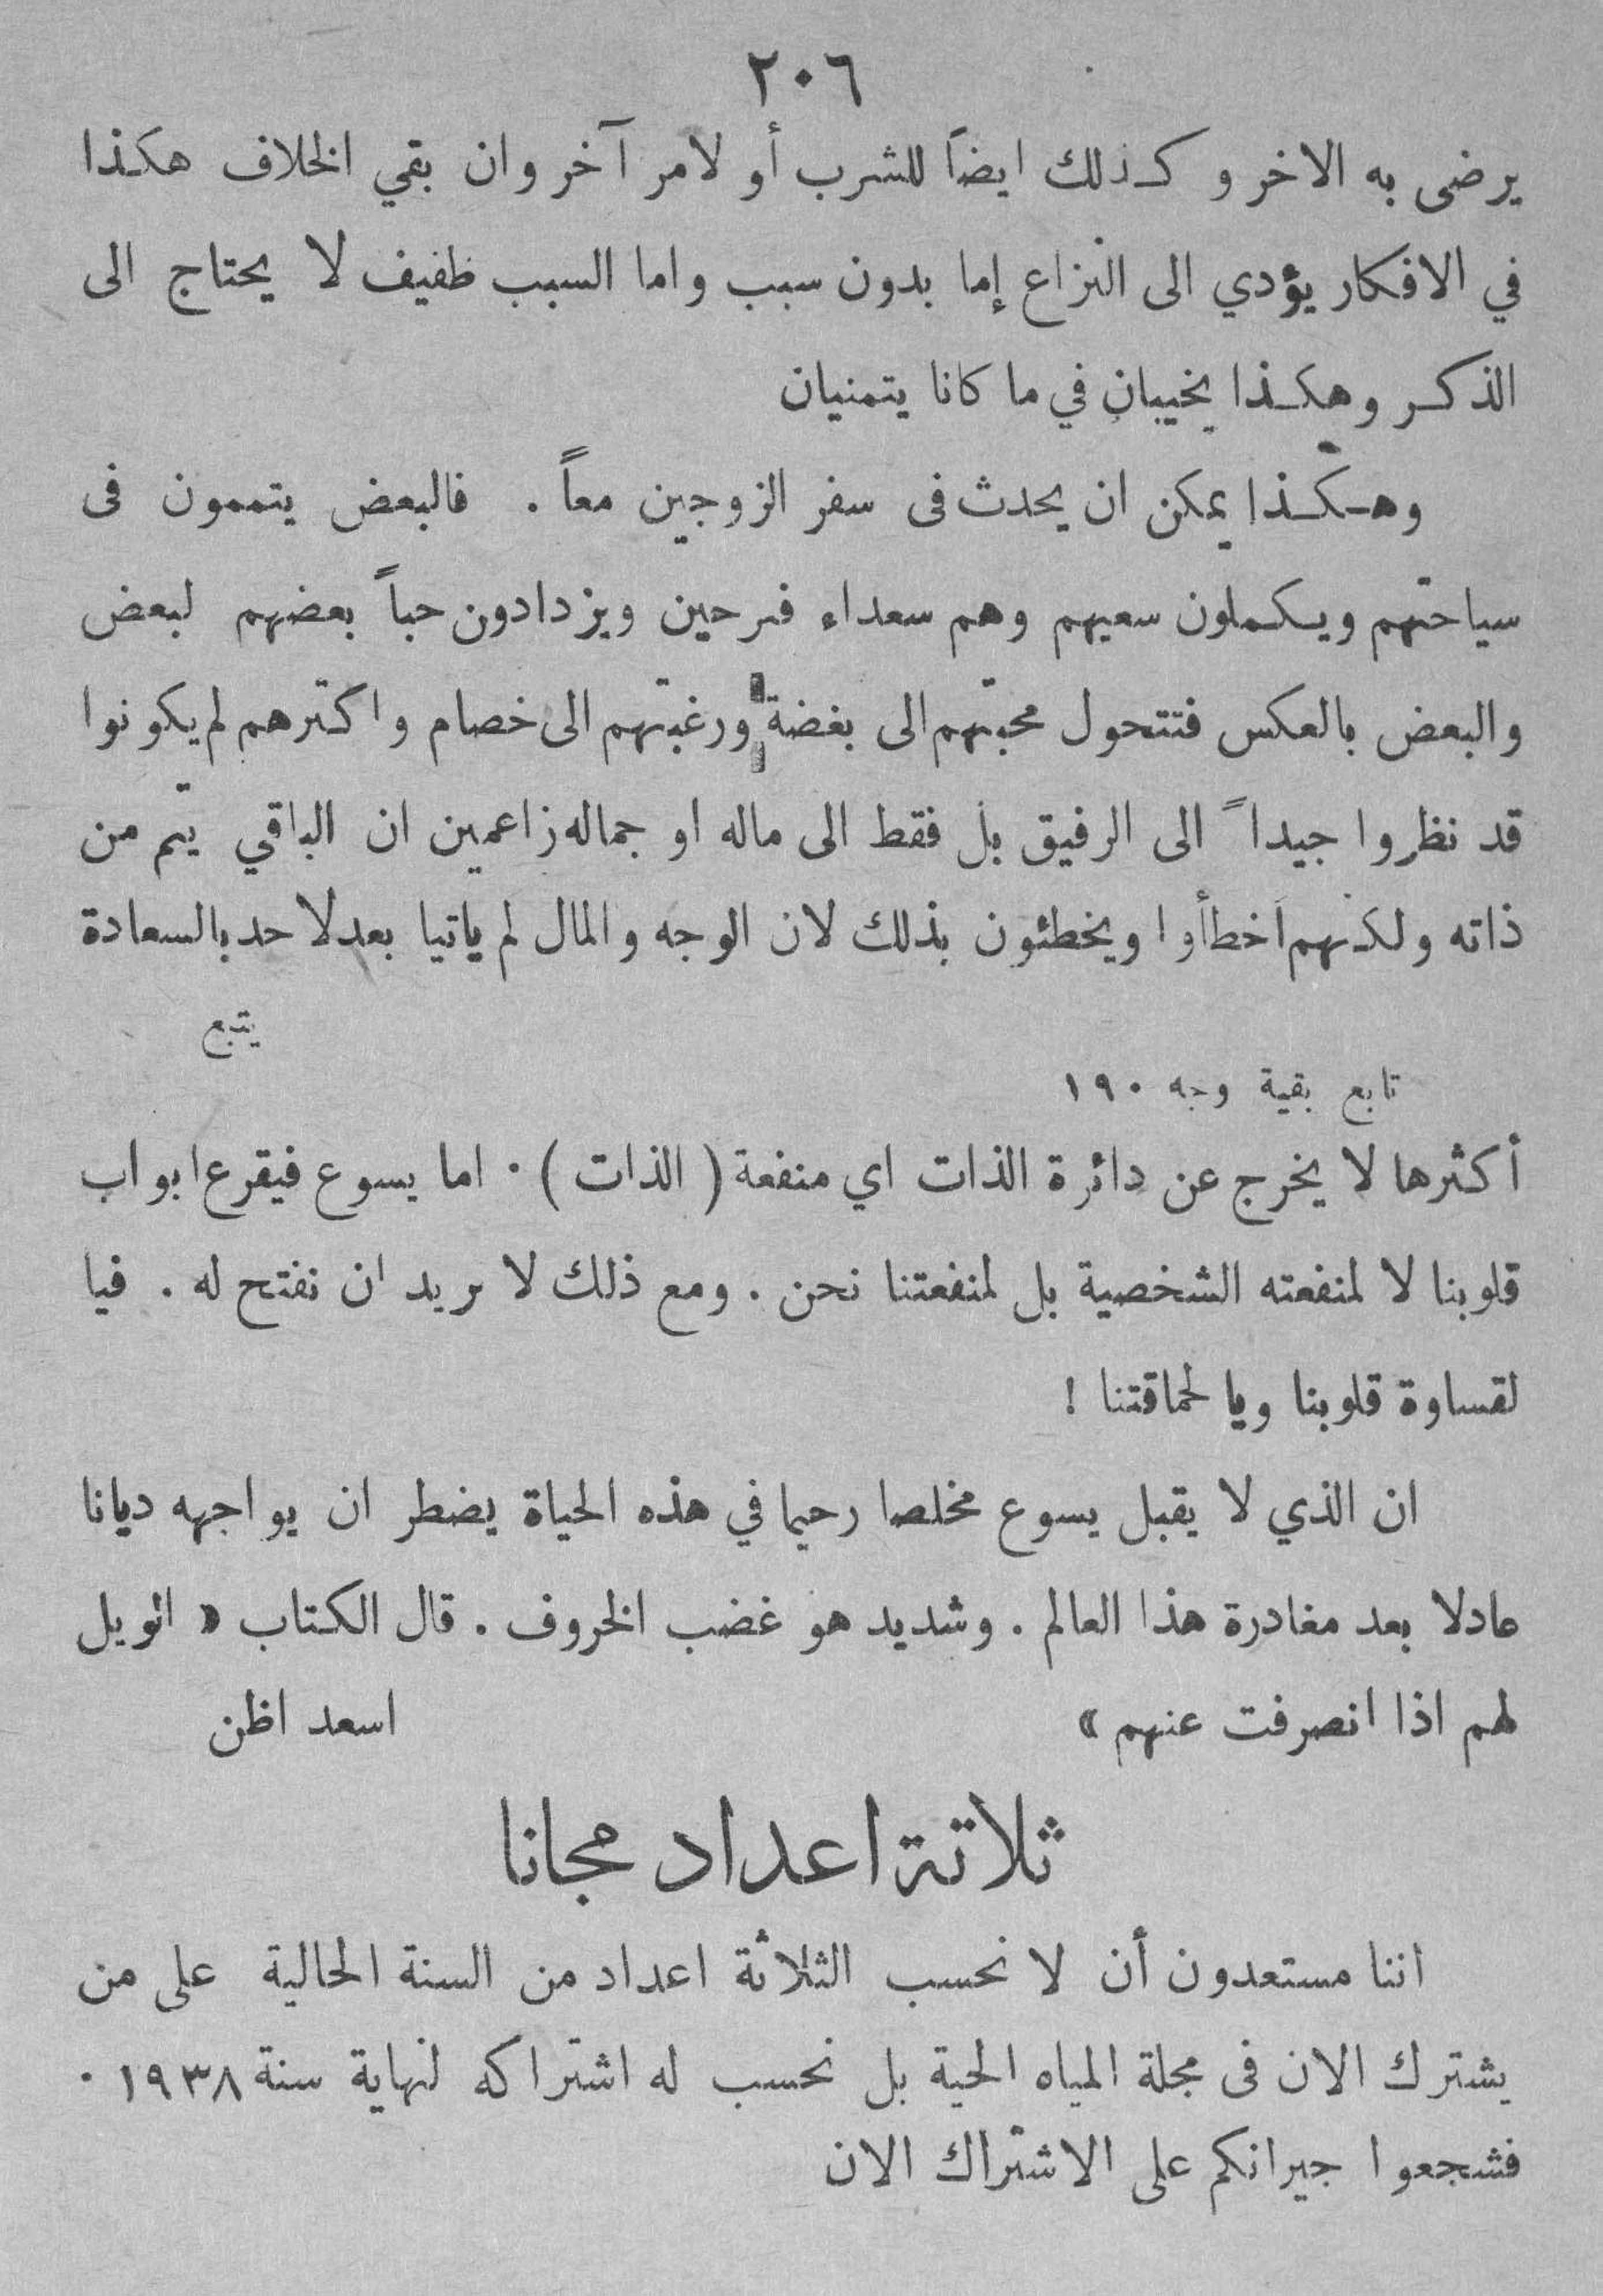 ٢٠٦
يرضى به الاخر وكذلك ايضاً للشرب أو لامر آخر وان بقي الخلاف هكذا
في الافكار يؤدي الى النزاع إما بدون سبب واما السبب طفيف لا يحتاج الى
الذكر وهكذا يخيبان في ما كانا يتمنيان
وهكذا يمكن ان يحدث فى سفر الزوجين معاً . فالبعض يتممون فى
سياحتهم ويكملون سعيهم وهم سعداء فرحين ويزدادون حباً بعضهم لبعض
والبعض بالعكس فتتحول محبتهم الى بغضة ورغبتهم الى خصام واكثرهم لم يكونوا
قد نظروا جيداً الى الرفيق بل فقط الى ماله او جماله زاعمين ان الباقي يتم من
ذاته ولكنهم اخطأوا ويخطئون بذلك لان الوجه والمال لم ياتيا بعد لاحد بالسعادة
يتبع
تابع بقية وجه ١٩٠
أكثرها لا يخرج عن دائرة الذات اي منفعة ( الذات ) . اما يسوع فيقرع ابواب
قلوبنا لا لمنفعته الشخصية بل لمنفعتنا نحن . ومع ذلك لا نريد ان نفتح له . فيا
لقساوة قلوبنا ويا لحماقتنا !
ان الذي لا يقبل يسوع مخلصا رحيما في هذه الحياة يضطر ان يواجهه ديانا
عادلا بعد مغادرة هذا العالم . وشديد هو غضب الخروف . قال الكتاب « الويل
لهم اذا انصرفت عنهم » اسعد اظن
ثلاثة اعداد مجانا
اننا مستعدون أن لا نحسب الثلاثة اعداد من السنة الحالية على من
يشترك الان فى مجلة المياه الحية بل نحسب له اشتراكه لنهاية سنة ١٩٣٨ .
فشجعوا جيرانكم على الاشتراك الان